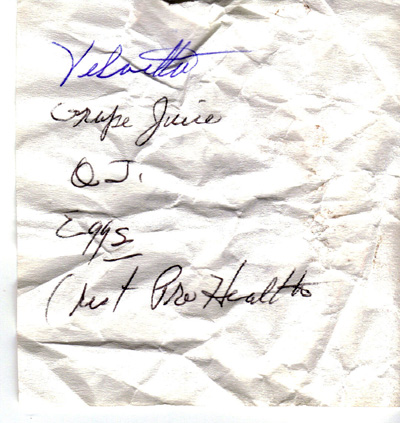 Velveetta
Grape Juice
O.J.
Eggs
Crest Pro Health